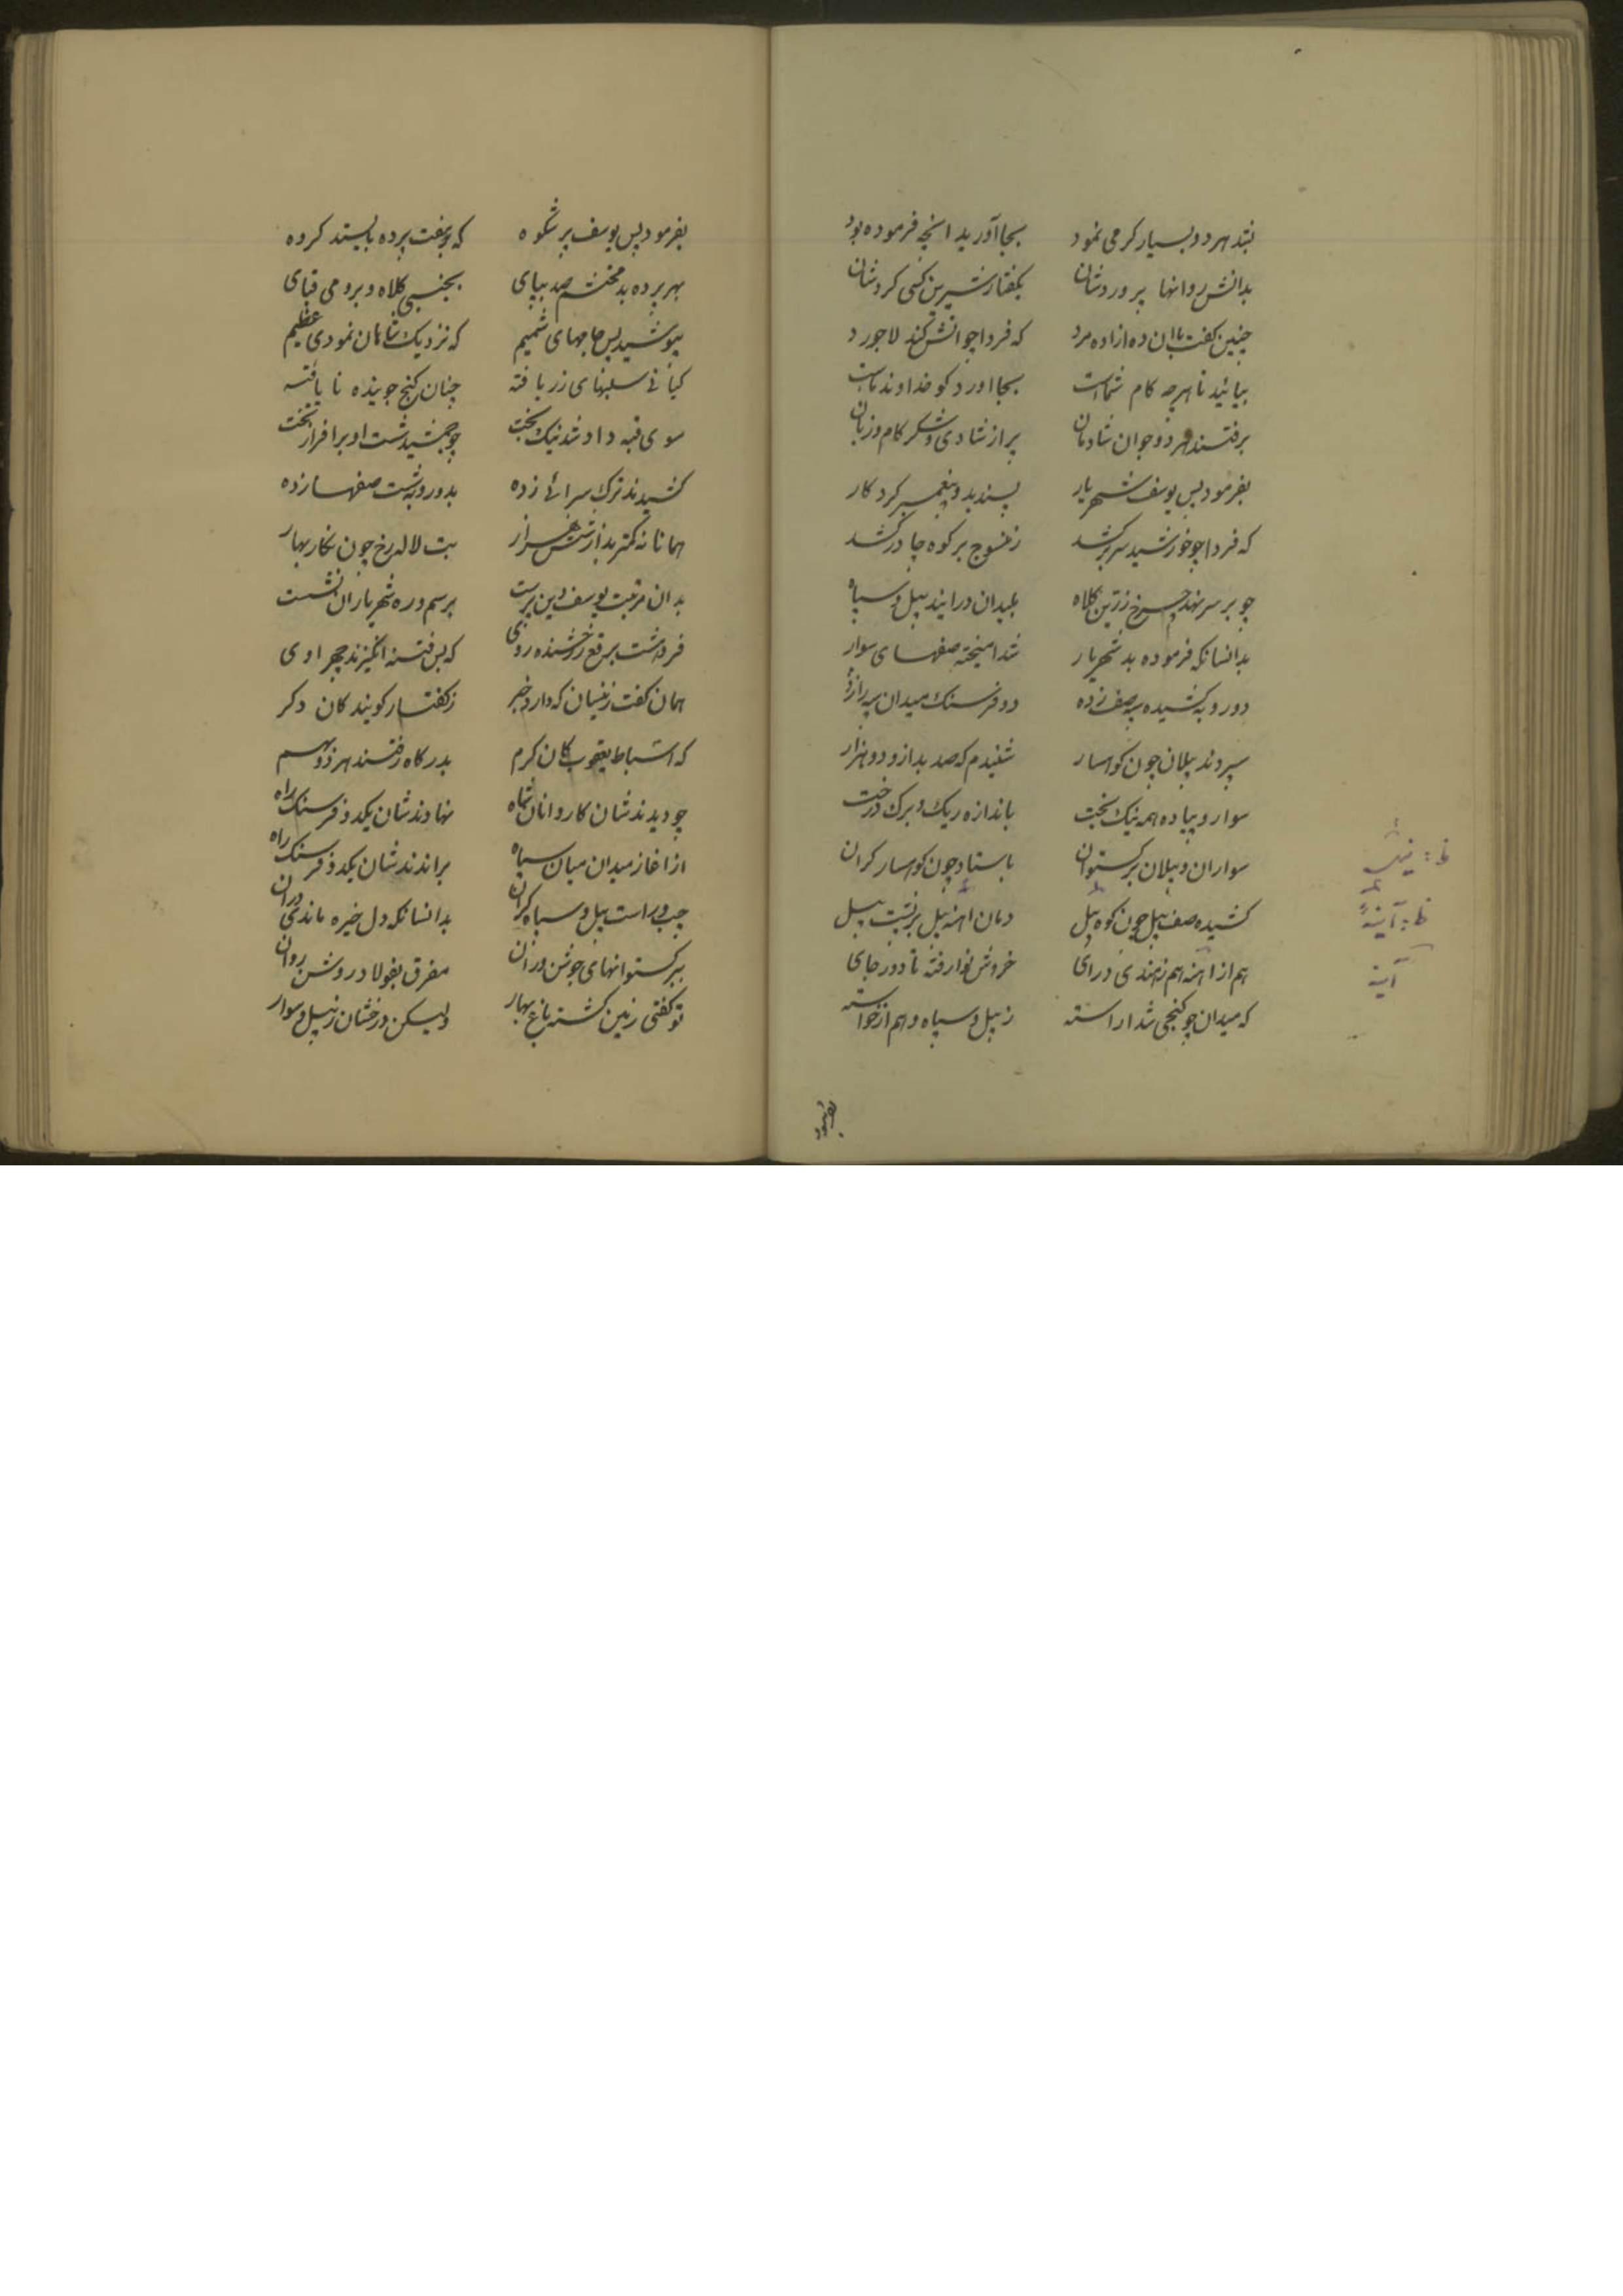 بتد هر دو بسیار کرمی نمود بجا آورید انچه فرموده بود
بدانش روانها پروردشان بکفتار شیرین کسی کردشان
چنین کفت با ان ده ازاده مرد که فردا چو اتش کند لاجورد
بیائید تا هرچه کام شماست بجا اورد کو خداوند ماست
برفتند هر دو جوان شادمان پر از شادی و شکر کام و زبان
بفرمود پس یوسف شهریار پسندید و پیغمبر کردکار
که فردا چو خورشید سر برکشد ز منسوج بر کوه چادر کشد
چو بر سر نهد چرخ زرین کلاه بمیدان درایند پیل و سپاه
بدانسانکه فرموده بد شهریار شد امیخته صفهای سوار
دورویه کشیده سپه صف زده دو فرسنک میدان سپه رازده
سپردند پیلان چون کوهسار شنیدم که صد بد ازو دو هزار
سوار و پیاده همه نیک بخت باندازه ریک و برک درخت
سواران و پیلان برکستوان باستاد چون کوهسار کران
کشیده صف پیل چون کوه پیل دمان اهنه پیل بر پشت پیل
هم از اهنه هم ز هندی درای خروش نوا رفته تا دور جای
که میدان چو کنجی شد اراسته ز پیل و سپاه و هم از خواسته
ظ: آینهٔ
آینه
بفرمود
بفرمود پس یوسف پر شکوه که بر هفت پرده بایستد کروه
بهر پرده بد محتشم صد بپای بجنسی کلاه و برومی قبای
بپوشید پس جامهای شمیم که نزدیک شاهان نمودی عظیم
کیانی سلبهای زر بافته چنان کنج جوینده نا یافته
سوی قبه داد شد نیک بخت چو جمشید شست او بر افراز تخت
کشیدند ترک سرائی زده بدور و برشت صفها زده
همانا نه کمتر بد از شش هزار بت لاله رخ چون نکار بهار
بدان مرتبت یوسف دین پرست برسم و ره شهریاران نشست
فروهشت برقع ز رخشنده روی که بس فتنه انکیزند چهر اوی
همان کفت زینسان که دارد خبر ز کفتار کویندکان دکر
که اسباط یعقوب کان کرم بدرکاه رفتند هر ده بهم
چو دیدند شان کاروانان شاه نهادند شان یکدو فرسنک راه
از اغاز میدان میان سپاه براندند شان یکدو فرسنک راه
چپ و راست پیل و سپاه کران بدانسانکه دل خیره ماندی دران
ببرکستوانهای جوشن وران مغرق بفولاد روشن روان
تو کفتی زمین کشته باغ بهار ولیکن درخشان ز پیل و سوار